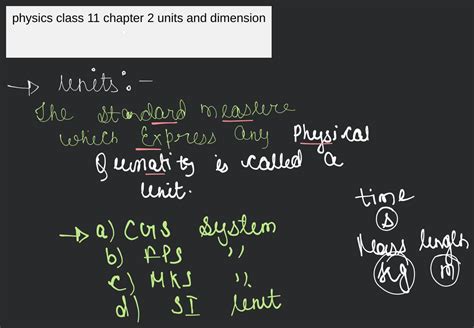 physics class 11 chapter 2 units and dimension
→ units:-
The standard measure
which Express any Physical
Qunatity is called a
unit.
→ a) CGS System
b) FPS ''
c) MKS ''
d) SI Unit
time
s
Mass length
kg m